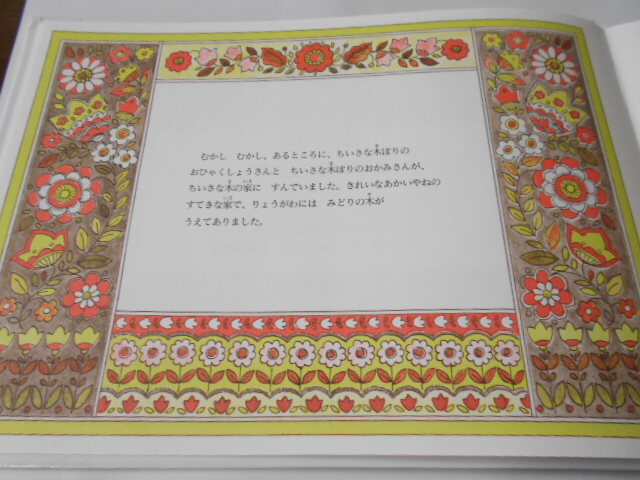 むかし　むかし、あるところに、ちいさな木ぼりの
おひゃくしょうさんと　ちいさな木ぼりのおかみさんが、
ちいさな木の家に　すんでいました。きれいなあかいやねの
すてきな家で、りょうがわには　みどりの木が
うえてありました。